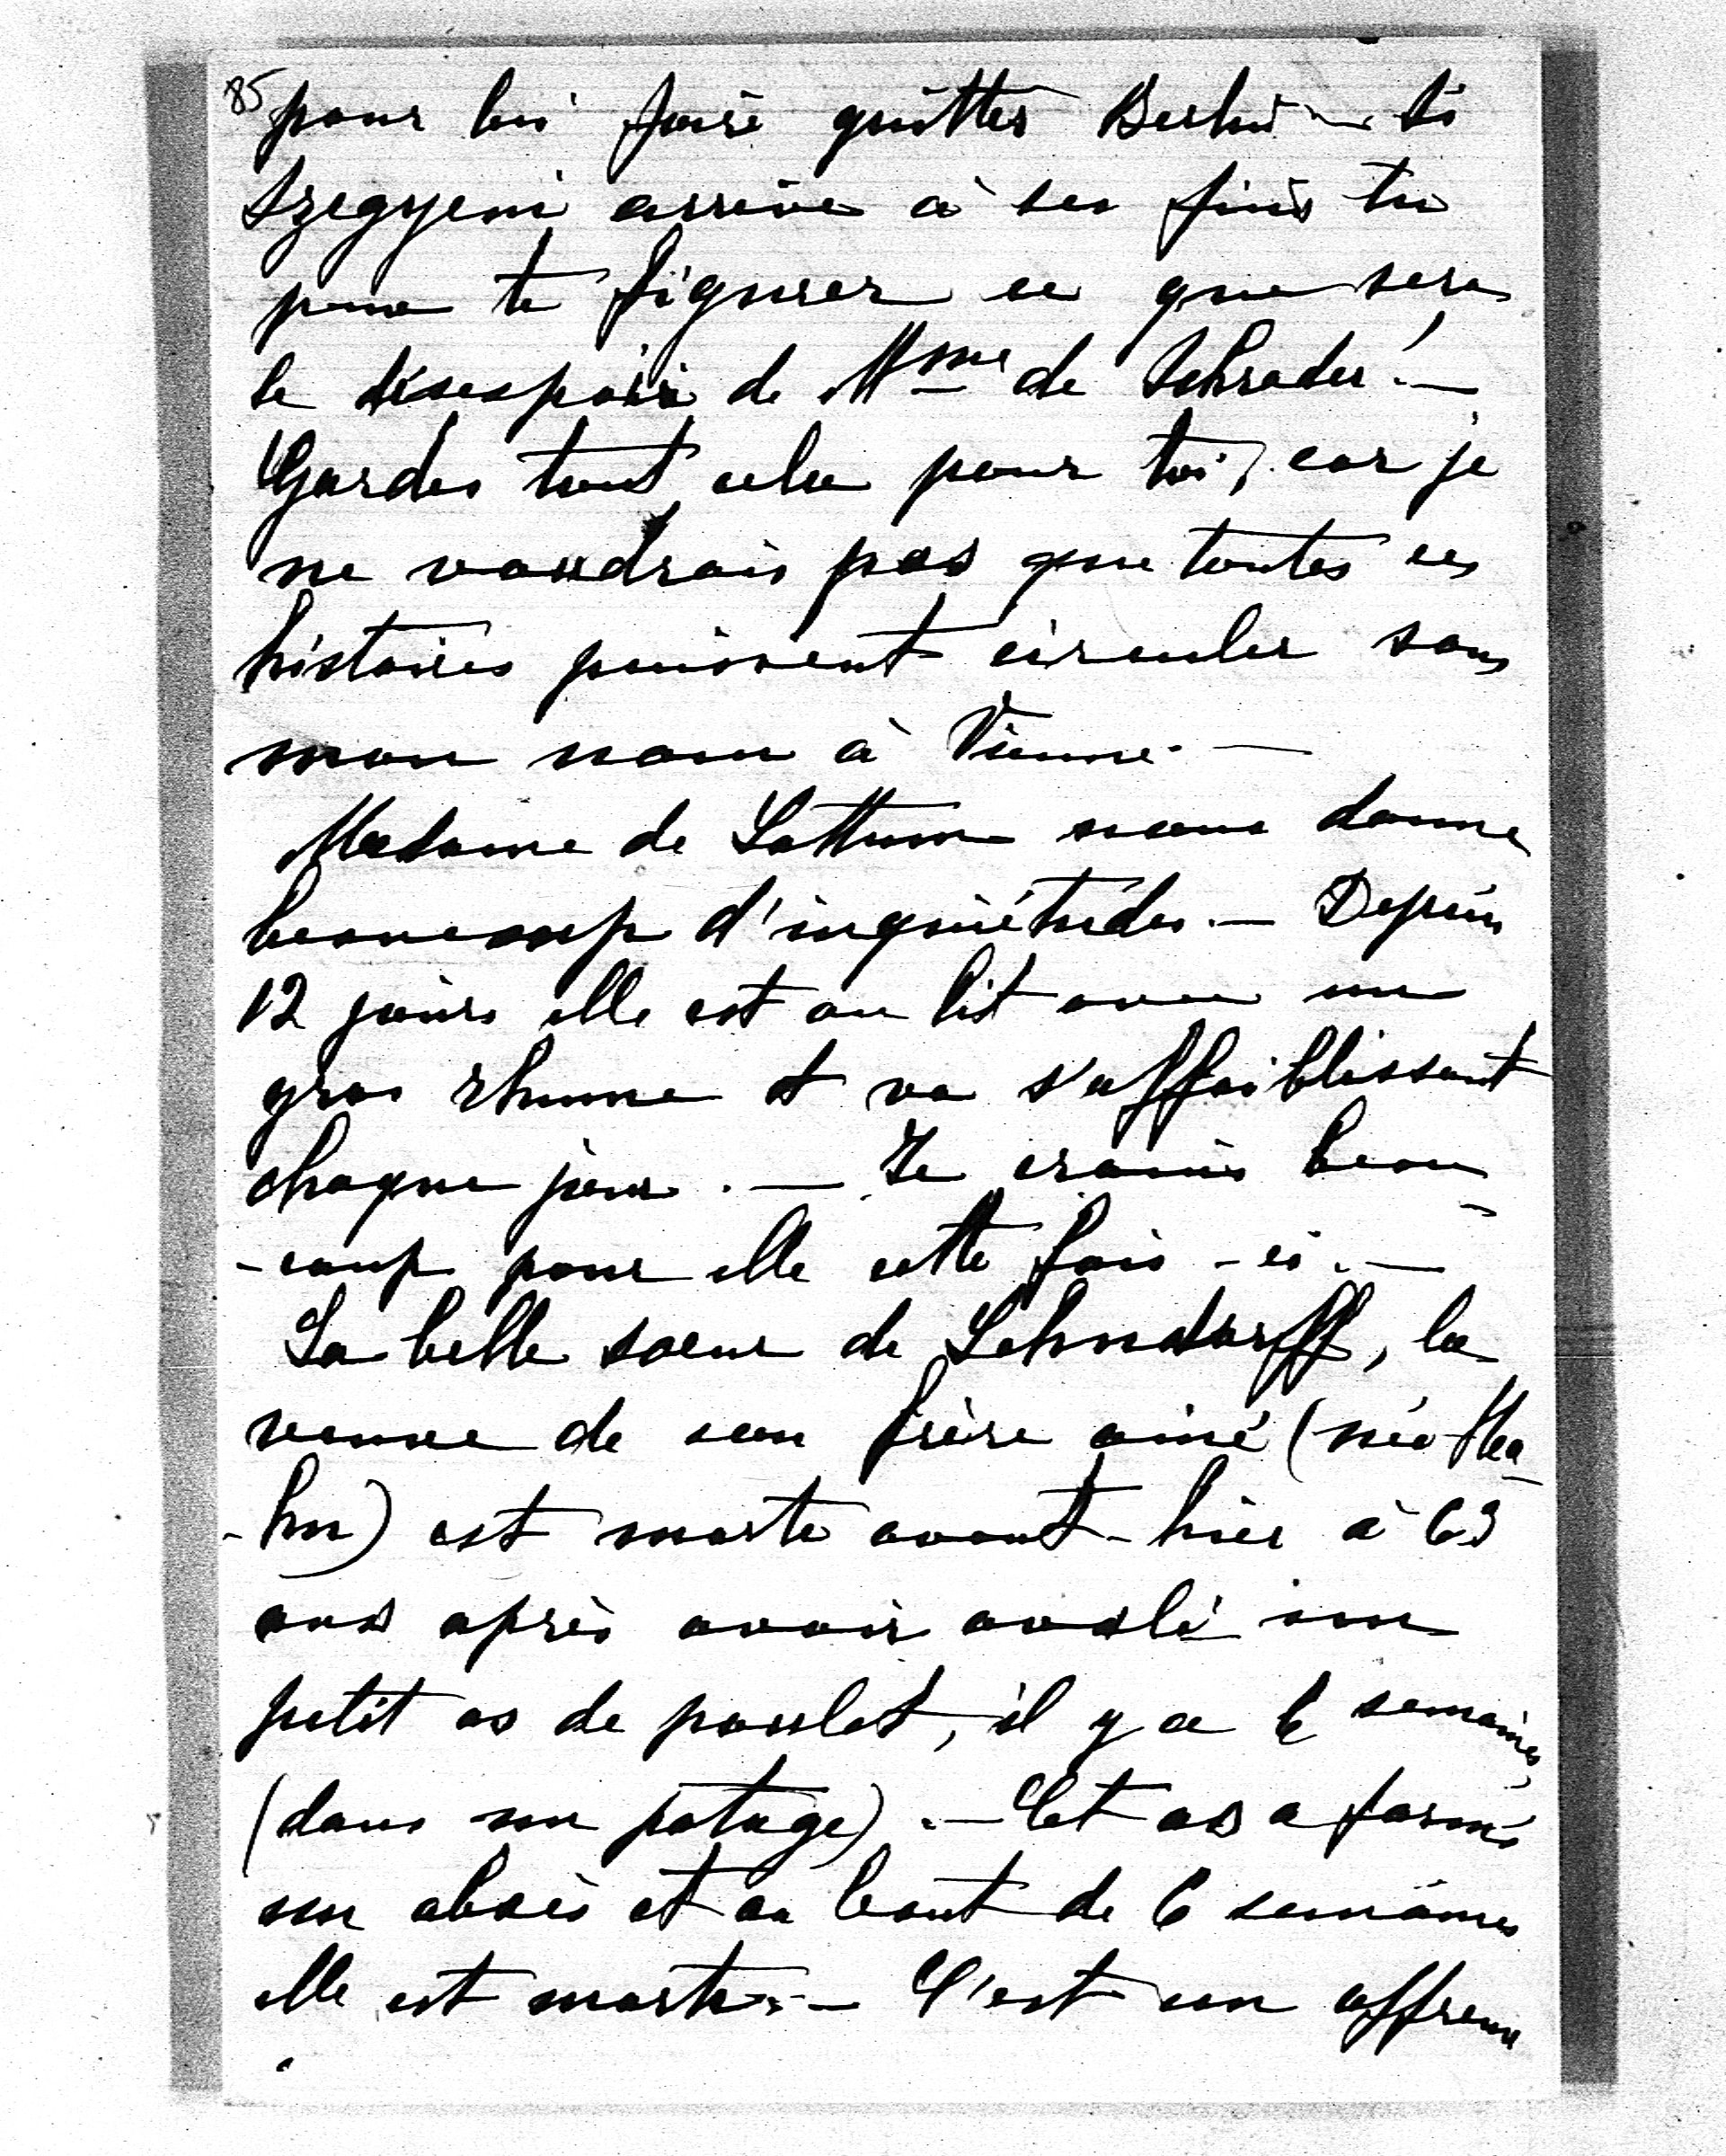 85
pour lui faire quitter Berlin – Si
Szegyeni arrive à ses fins tu
peux te figurer ce que sera
le désespoir de Mme de Schrader! –
Gardes tout cela pour toi, car je
ne voudrais pas que toutes ces
histoires puissent circuler sous
mon nom à Vienne. –
Madame de Lottum nous donne
beaucoup d'inquiétudes. – Depuis
12 jours elle est au lit avec un
gros rhume et va s'affaiblissant
chaque jour. – Je crains beau
-coup pour elle cette fois-ci. –
La belle soeur de Lehndorff, la
veuve de son frère ainé (née Ha
-hn) est morte avant-hier à 63
ans après avoir avalé un
petit os de poulet, il y a 6 semaines,
(dans son potage). – Cet os a formé
un abcès et au bout de 6 semaines
elle est morte. – C'est un affreux